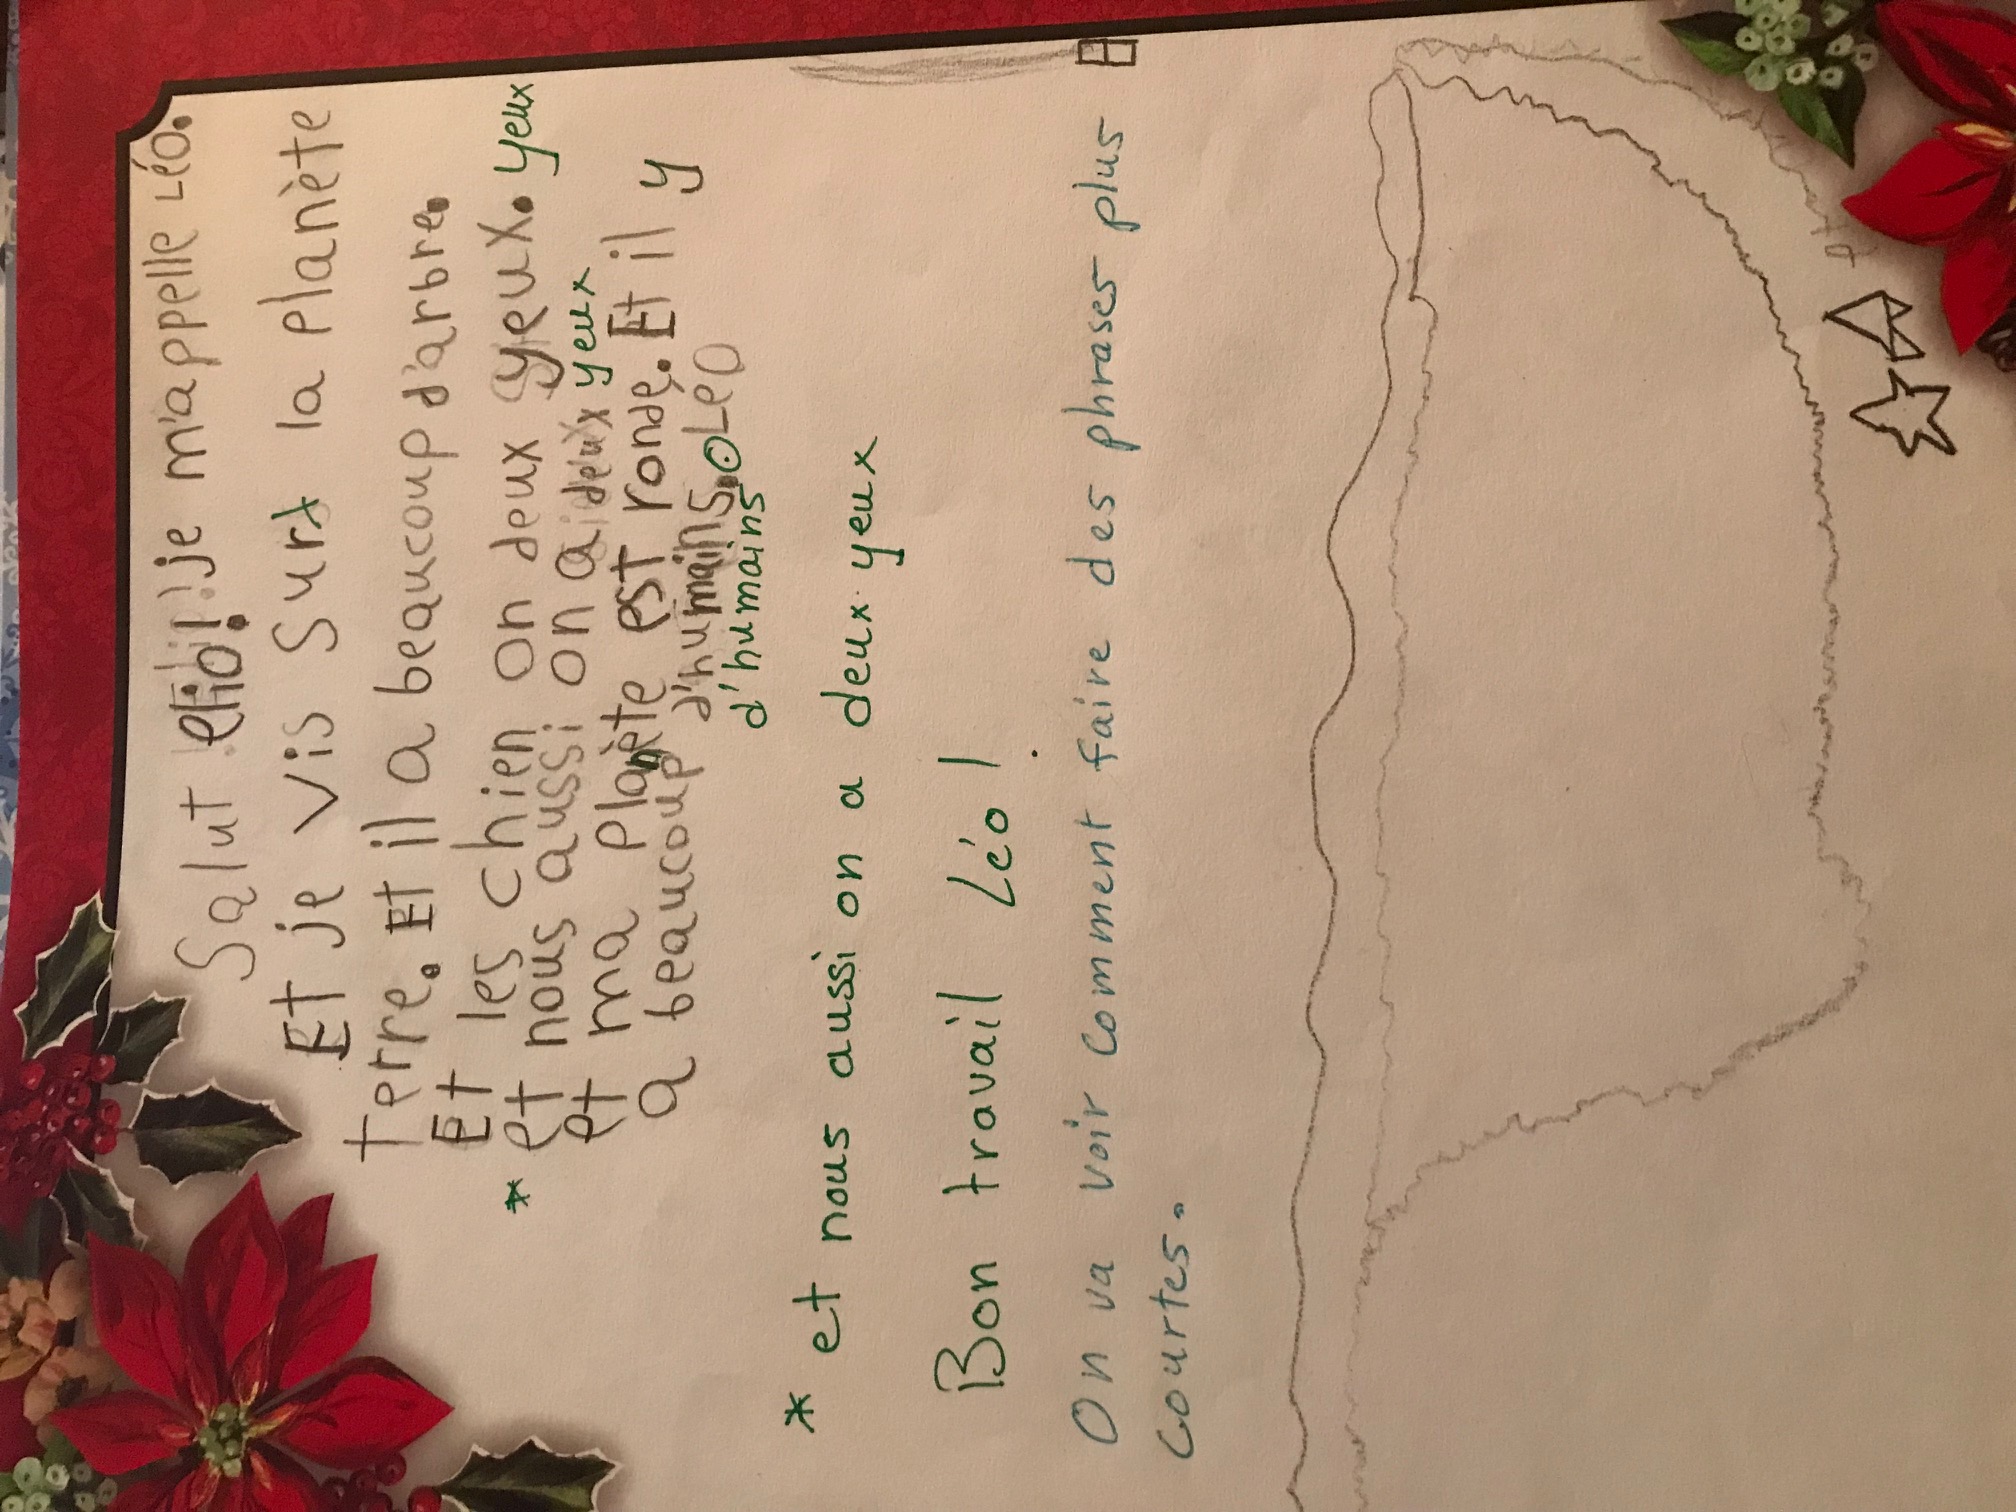 Salut ! je m'appelle Léo.
Et je vis sur la planète
terre. Et il a beaucoup d'arbre.
Et les chien on deux yeux. yeux
* et nous aussi on a deux yeux
et ma planète est ronde. Et il y
a beaucoup d'humains. Léo
d'humains
* et nous aussi on a deux yeux
Bon travail Léo !
On va voir comment faire des phrases plus
courtes.